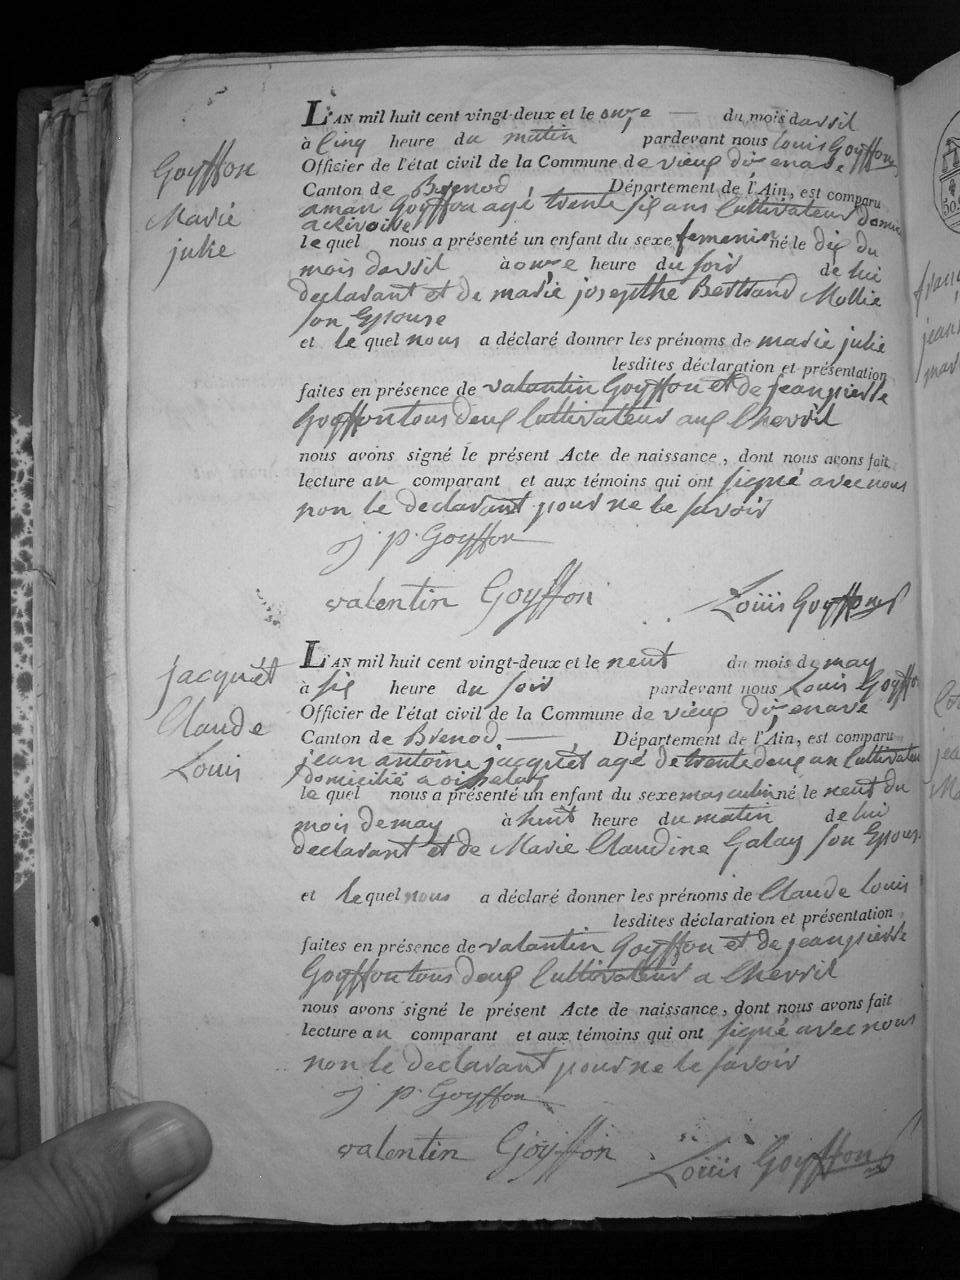 Goyffon
Marie
julie
L'AN mil huit cent vingt-deux et le onze — du mois davril
à Cinq heure du matin pardevant nous Louis Goyffon
Officier de l'état civil de la Commune de vieux dizenave
Canton de Brenod Département de l'Ain, est comparu
aman Goyffon agé trente six ans Cultivateur domici
le quel nous a présenté un enfant du sexe femenin né le dix du
mois davril à onze heure du soir de lui
declarant et de marie josepthe Bertrand Mollie
son Epouse
et le quel nous a déclaré donner les prénoms de marie julie
lesdites déclaration et présentation
faites en présence de valantin Goyffon et de jeanpierre
Goyffon tous deux Cultivateur aux Chevril
nous avons signé le présent Acte de naissance, dont nous avons fait
lecture au comparant et aux témoins qui ont signé avec nous
non le declarant pour ne le savoir
j p Goyffon
valentin Goyffon Louïs Goyffon
jacquèt
Claude
Louis
L'AN mil huit cent vingt-deux et le neuf du mois de may
à six heure du soir pardevant nous Louis Goyffo
Officier de l'état civil de la Commune de vieux dizenave
Canton de Brenod. — Département de l'Ain, est comparu
jean antoine jacquèt agé de trente deux an Cultivateu
domicilié a
le quel nous a présenté un enfant du sexe masculin né le neuf du
mois de may à huit heure du matin de lui
declarant et de Marie Claudine Galay son Epouse
et le quel nous a déclaré donner les prénoms de Claude louis
lesdites déclaration et présentation
faites en présence de valantin Goyffon et de jeanpierre
Goyffon tous deux Cultivateur a Chevril
nous avons signé le présent Acte de naissance, dont nous avons fait
lecture au comparant et aux témoins qui ont signé avec nous
non le declarant pour ne le savoir
j p Goyffon
valentin Goyffon Louïs Goyffon